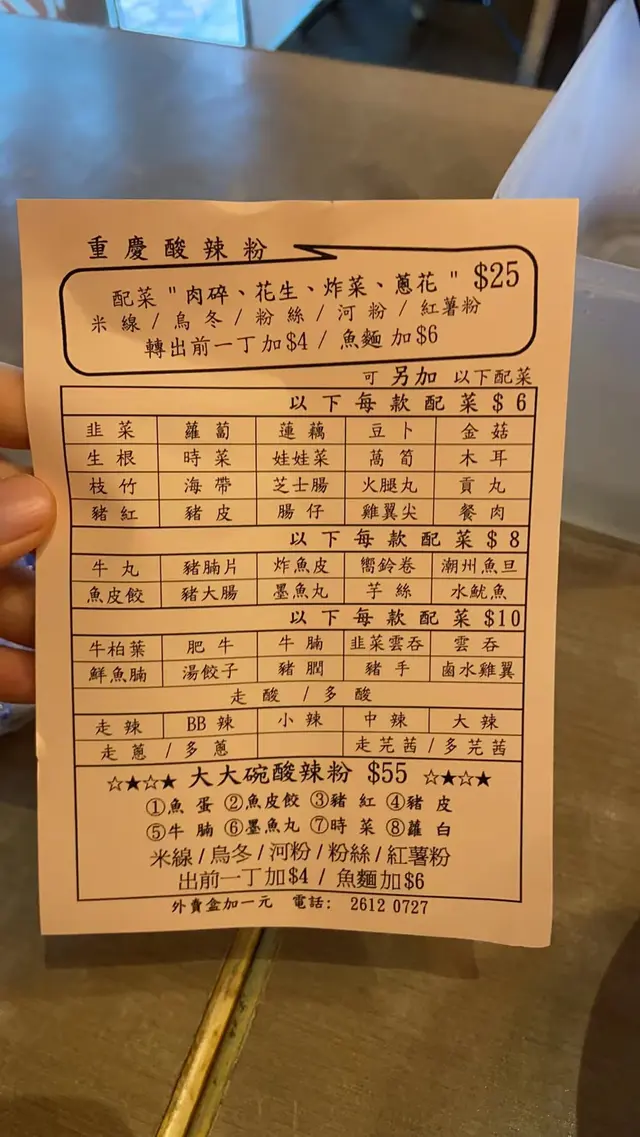 重慶酸辣粉
配菜 "肉碎、花生、炸菜、蔥花" $25
米線/烏冬/粉絲/河粉/紅薯粉
轉出前一丁加$4 / 魚麵加$6
可 另加 以下配菜
以下每款配菜$6
韭菜 蘿蔔 蓮藕 豆卜 金菇
生根 時菜 娃娃菜 萵筍 木耳
枝竹 海帶 芝士腸 火腿丸 貢丸
豬紅 豬皮 腸仔 雞翼尖 餐肉
以下每款配菜$8
牛丸 豬腩片 炸魚皮 嚮鈴卷 潮州魚旦
魚皮餃 豬大腸 墨魚丸 芋絲 水魷魚
以下每款配菜$10
牛柏葉 肥牛 牛腩 韭菜雲吞 雲吞
鮮魚腩 湯餃子 豬潤 豬手 鹵水雞翼
走酸 / 多酸
走辣 BB辣 小辣 中辣 大辣
走蔥 / 多蔥 走芫茜 / 多芫茜
☆★☆★ 大大碗酸辣粉 $55 ☆★☆★
①魚蛋 ②魚皮餃 ③豬紅 ④豬皮
⑤牛腩 ⑥墨魚丸 ⑦時菜 ⑧蘿白
米線/烏冬/河粉/粉絲/紅薯粉
出前一丁加$4 / 魚麵加$6
外賣盒加一元 電話: 2612 0727